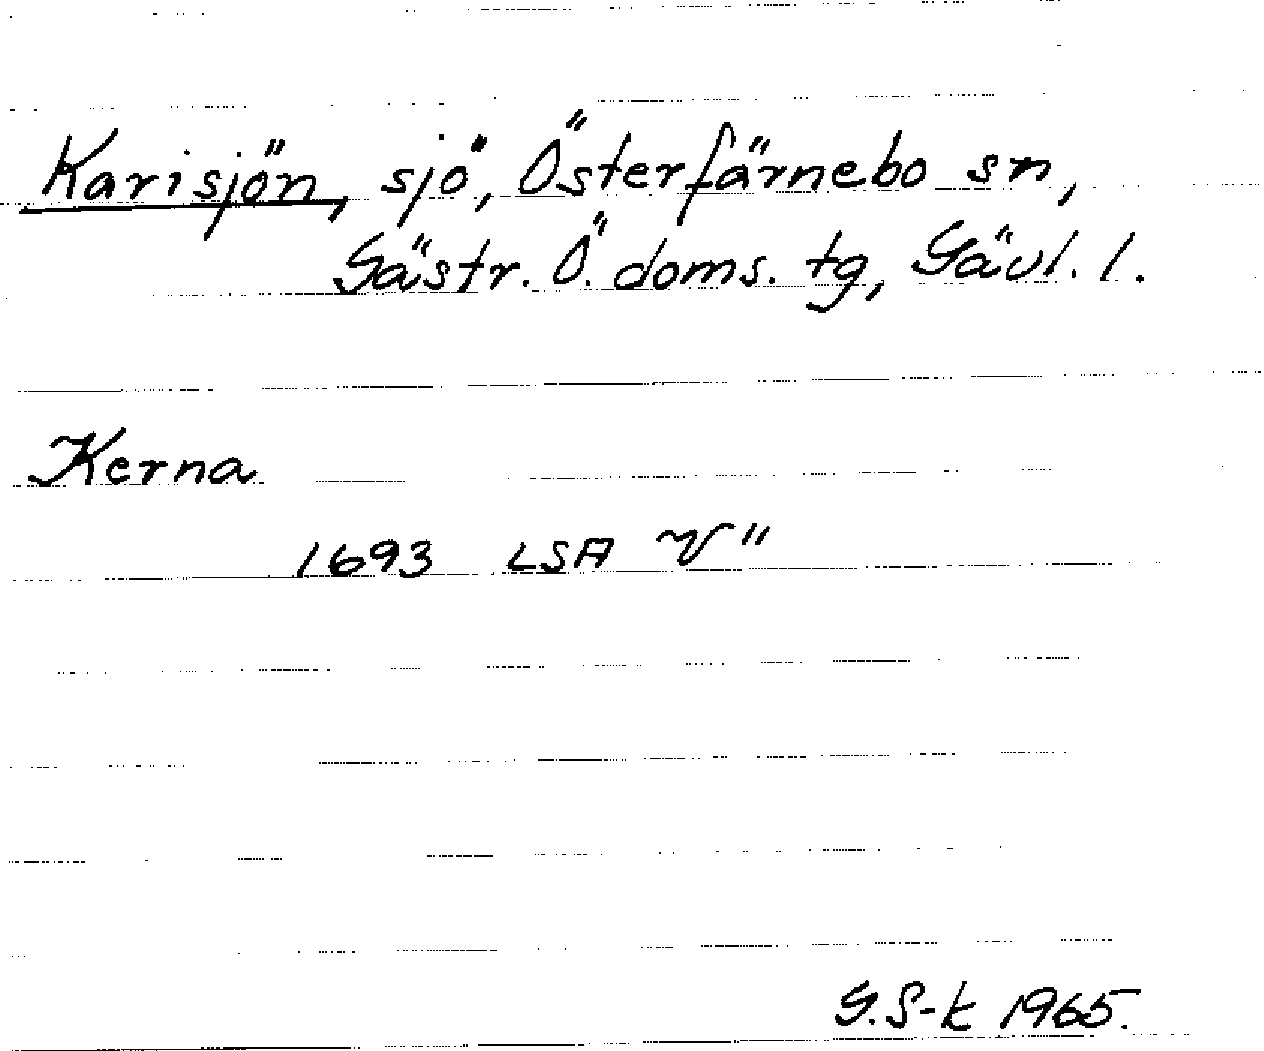 Karisjön, sjö, Österfärnebo sn,
Gästr. Ö. doms. tg, Gävl. l.
Kerna
1693 LSA V"
G.S-k 1965.